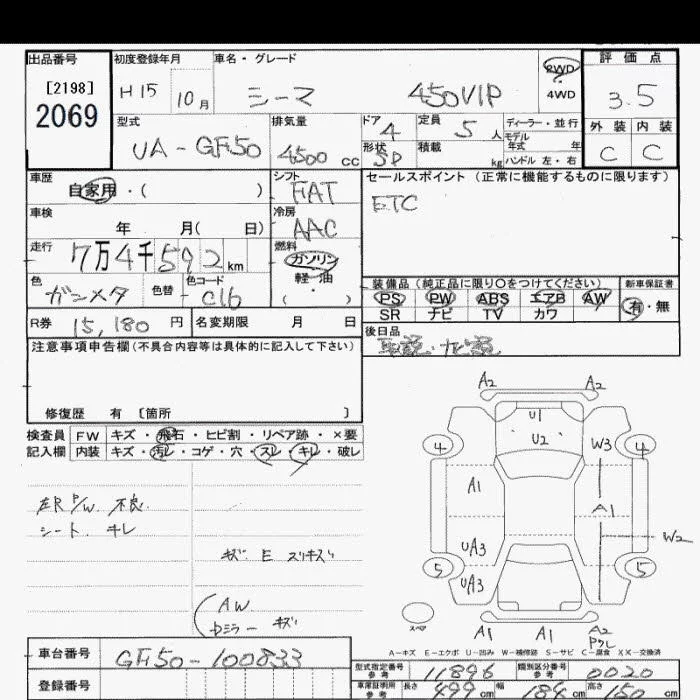 出品番号 初度登録年月 車名・グレード 評価点
[2198]
2069
H15 10月 シーマ 450VIP 2WD 4WD 3.5
型式 排気量 ドア 定員 ディーラー・並行 外装 内装
UA-GF50 4500 cc 4 5人 モデル年式 年式 C C
形状 SD 積載 kg ハンドル 左・右
車歴 シフト セールスポイント (正常に機能するものに限ります)
自家用・( ) FAT ETC
車検 冷房
年 月( 日) AAC
走行 燃料
7万4千592km ガソリン
色 色替 色コード 軽・油
ガンメタ C16 ( ・ )
装備品 (純正品に限り○をつけてください) 新車保証書
PS PW ABS エアB AW 有・無
SR ナビ TV カワ
R券 15,180 円 名変期限 月 日
後日品
注意事項申告欄(不具合内容等は具体的に記入して下さい)
修復歴 有 〔箇所 〕
検査員 FW キズ・飛石・ヒビ割・リペア跡・×要
記入欄 内装 キズ・汚レ・コゲ・穴・スレ・キレ・破レ
左R P/W 不良
シート キレ
キズ E スリキズ
AW
Dミラー キズ
A2 A2
U1
U2
4 W3 4
A1 A1
W2
UA3
5 5
UA3
スペア
A1 A1 A2
A-キズ E-エクボ U-凹み W-補修跡 S-サビ C-腐食 XX-交換済
車台番号 GF50-100833
登録番号
型式指定番号 参考 11896 類別区分番号 参考 0020
車庫証明用 参考 長さ 499cm 幅 184cm 高さ 150cm